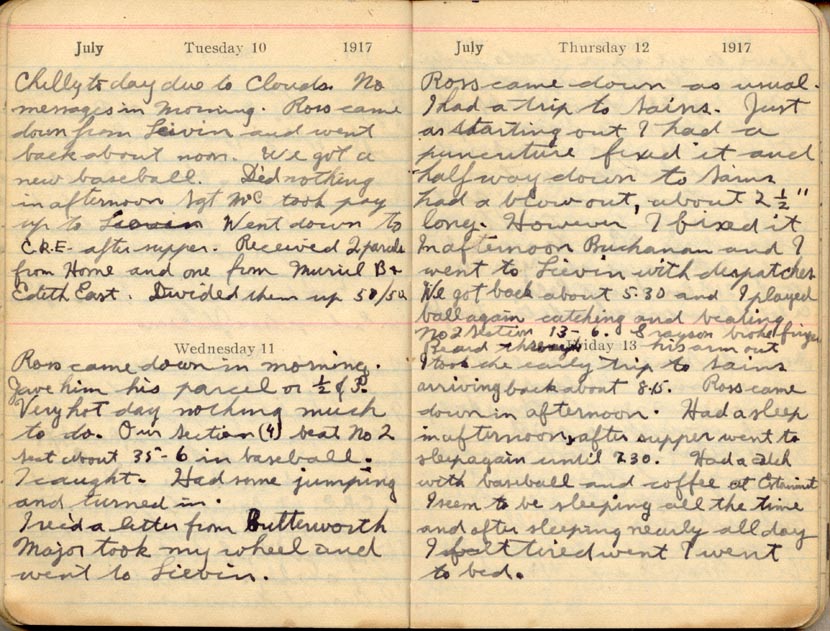 July Tuesday 10 1917
Chilly to day due to Clouds. No
messages in morning. Ross came
down from Lievin and went
back about noon. We got a
new baseball. Did nothing
in afternoon Sgt McC took pay
up to Lievin Went down to
C.R.E. after supper. Received 2 parcels
from Home and one from Muriel B &
Edith East. Divided them up 50/50
Wednesday 11
Ross came down in morning.
Gave him his parcel or ½ of P.
Very hot day nothing much
to do. Our section (4) beat No 2
sect about 35-6 in baseball.
I caught. Had some jumping
and turned in.
I rec'd a letter from Butterworth
Major took my wheel and
went to Lievin.
July Thursday 12 1917
Ross came down as usual.
I had a trip to Sains. Just
as starting out I had a
puncuture fixed it and
half way down to Sains
had a blow out, about 2 ½"
long. However I fixed it
In afternoon Buchanan and I
went to Lievin with despatches
We got back about 5.30 and I played
ball again catching and bearing
No 2 section 13-6. Grayson broke finger
Beard his arm out
Friday 13
I took the early trip to Sains
arriving back about 8.15. Ross came
down in afternoon. Had a sleep
in afternoon, after supper went to
sleep again until 7.30. Had a
with baseball and coffee at Estaminet
I seem to be sleeping all the time
and after sleeping nearly all day
I felt tired went I went
to bed.